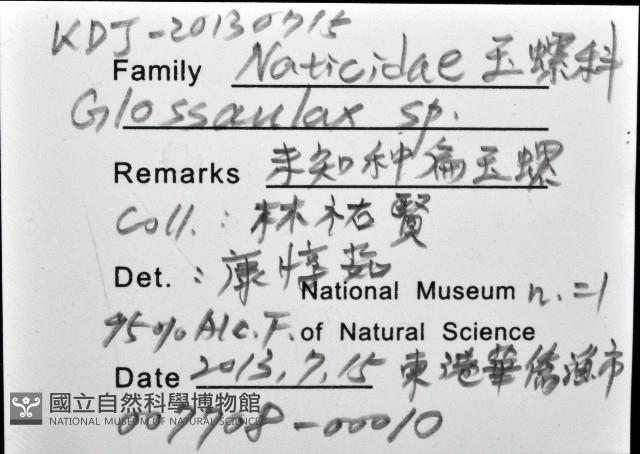 KDJ-20130715
Family Naticidae 玉螺科
Glossaulax sp.
Remarks 未知种扁玉螺
Coll.: 林祐賢
Det.: 康惇茹
National Museum n.=1
95% Alc. F. of Natural Science
Date 2013.7.15 東港華僑漁市
國立自然科學博物館
NATIONAL MUSEUM OF NATURAL SCIENCE
007708-00010